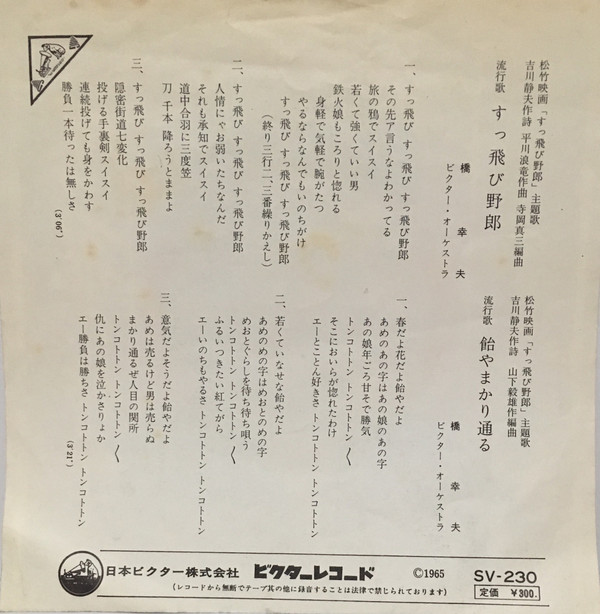 松竹映画「すっ飛び野郎」主題歌
吉川静夫作詩 平川浪竜作曲 寺岡真三編曲
流行歌 すっ飛び野郎
橋 幸夫
ビクター・オーケストラ
一、すっ飛び すっ飛び すっ飛び野郎
その先ァ言うなよわかってる
旅の鴉でスイスイ
若くて強くていい男
鉄火娘もころりと惚れる
身軽で気軽で腕がたつ
やるならなんでもいのちがけ
すっ飛び すっ飛び すっ飛び野郎
(終り三行二、三番繰りかえし)
二、すっ飛び すっ飛び すっ飛び野郎
人情にゃお弱いたちなんだ
それも承知でスイスイ
道中合羽に三度笠
刀 千本 降ろうとままよ
三、すっ飛び すっ飛び すっ飛び野郎
隠密街道七変化
投げる手裏剣スイスイ
連続投げても身をかわす
勝負一本待ったは無しさ
(3′06″)
松竹映画「すっ飛び野郎」主題歌
吉川静夫作詩 山下毅雄作編曲
流行歌 飴やまかり通る
橋 幸夫
ビクター・オーケストラ
一、春だよ花だよ飴やだよ
あめのあの字はあの娘のあの字
あの娘年ごろ甘そで勝気
トンコトトン トンコトトン 〱
そこにおいらが惚れたわけ
エーとことん好きさ トンコトトン トンコトトン
二、若くていなせな飴やだよ
あめのめの字はめおとのめの字
めおとぐらしを待ち待ち唄う
トンコトトン トンコトトン 〱
ふるいつきたい紅てがら
エーいのちもやるさ トンコトトン トンコトトン
三、意気だよそうだよ飴やだよ
あめは売るけど男は売らぬ
まかり通るぜ人目の関所
トンコトトン トンコトトン 〱
仇にあの娘を泣かさりょか
エー勝負は勝ちさ トンコトトン トンコトトン
(3′21″)
日本ビクター株式会社 ビクターレコード ©1965 SV-230
(レコードから無断でテープ其の他に録音することは法律で禁じられております) 定価 ¥300.